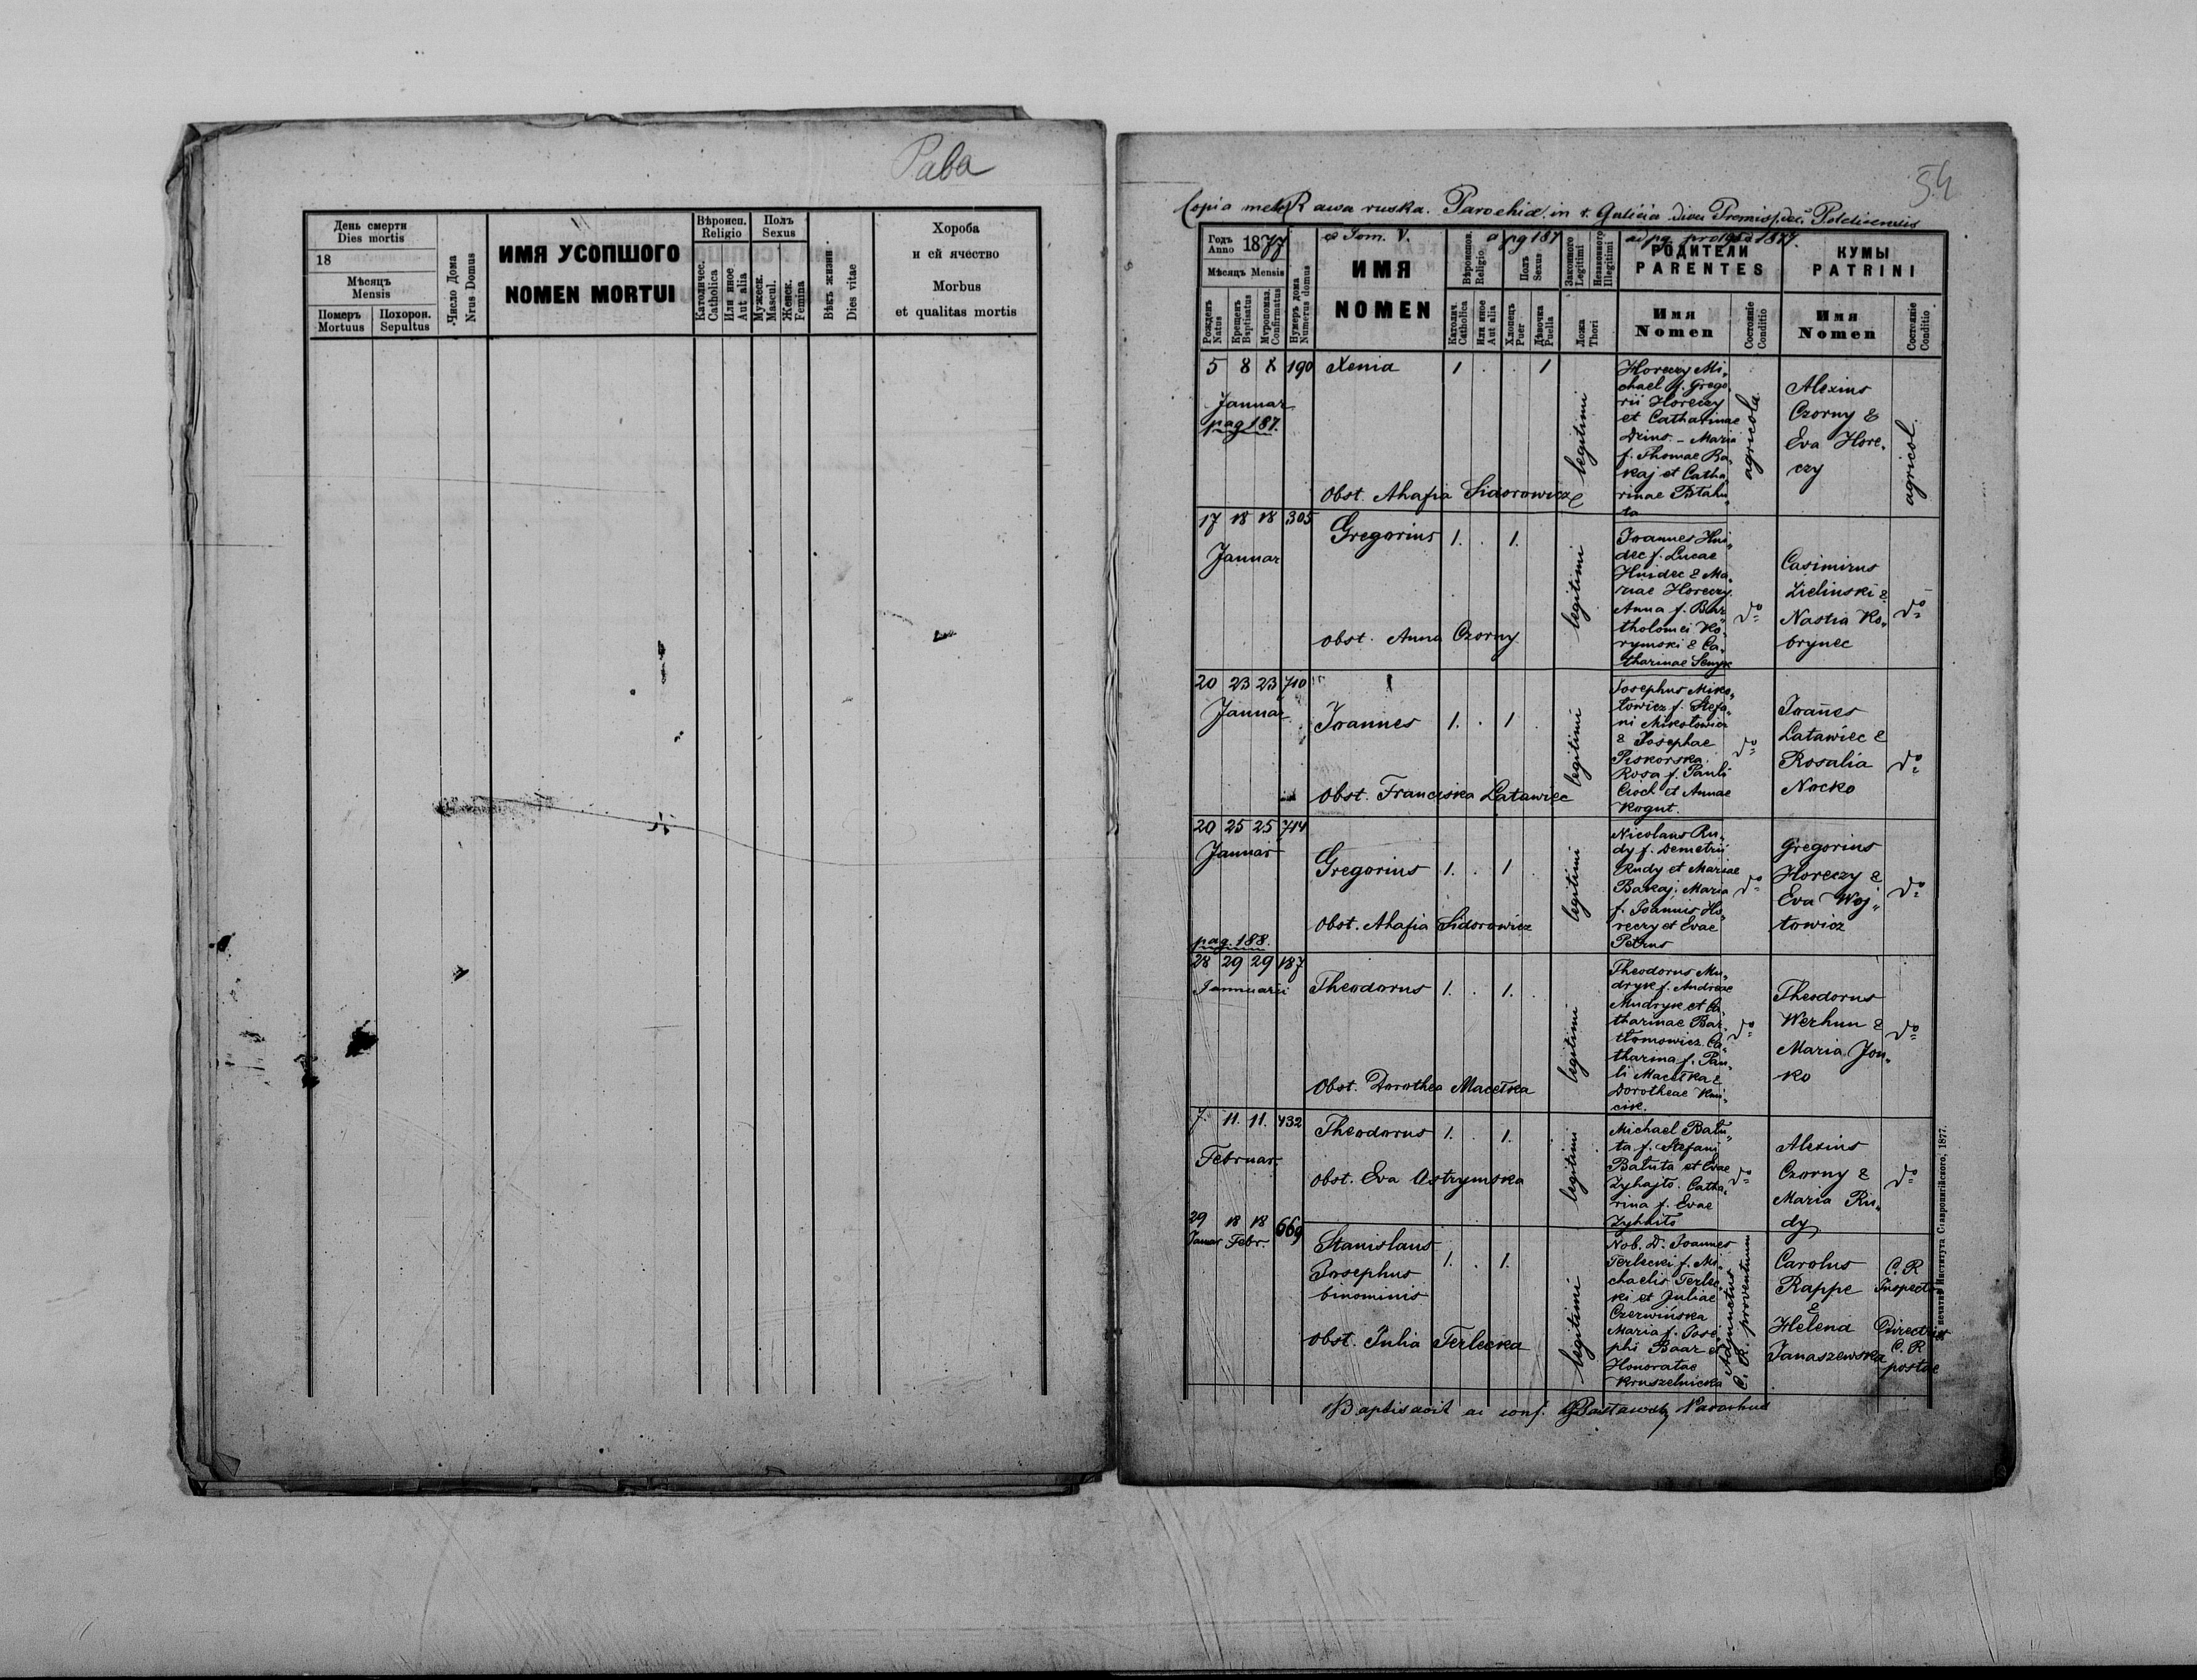 Рава
День смерти
Dies mortis
18
Мѣсяцъ
Mensis
Померъ
Mortuus
Похорон.
Sepultus
Число Дома
Nrus Domus
ИМЯ УСОПШОГО
NOMEN MORTUI
Вѣроисп.
Religio
Католичес.
Catholica
Или иное
Aut alia
Полъ
Sexus
Мужеск.
Mascul.
Женск.
Femina
Вѣкъ жизни
Dies vitae
Хороба
и ей ячество
Morbus
et qualitas mortis
54
Copia Rawa ruska. Parochiæ in r. Galicia
Годъ
Anno 1877
Tom. V. a pg 187 ad pg. 1877.
Мѣсяцъ Mensis
Рожденъ
Natus
Крещенъ
Baptisatus
Мѵропомаз.
Confirmatus
Нумеръ дома
Numerus domus
ИМЯ
NOMEN
Вѣроиспов.
Religio
Католич.
Catholica
Или иное
Aut alia
Полъ
Sexus
Хлопецъ
Puer
Дѣвочка
Puella
Законного
Legitimi
Незаконного
Illegitimi
Ложа
Thori
РОДИТЕЛИ
PARENTES
Имя
Nomen
Состояніе
Conditio
КУМЫ
PATRINI
Имя
Nomen
Состояніе
Conditio
5 8 8 190 Xenia 1 . . 1
Januar
pag 187.
Obst. Ahafia Sidorowicz
legitimi
Horeczy Mi„
chael f. Grego
rii Horeczy
et Catharinae
Dzius. - Maria
f. Thomae Ba„
kaj et Catha„
rinae
agricola
Alexius
Czorny &
Eva Hore„
czy
agricol.
17 18 18 305 Gregorius 1. . 1.
Januar
obst. Anna Czorny
legitimi
Ioannes Hni„
dec f. Lucae
Hnidec & Ma„
riae Horeczy.
Anna f. Bar
tholomei Ko„
rymski & Ca„
tharinae Senyk
do
Casimirus
Zielinski &
Nastia Ko„
brynec
do
20 23 23 710
Januar
Ioannes 1. . 1 .
Obst. Franciska Latawiec
legitimi
Josephus Miko„
łowicz f. Stefa„
ni Mikołowicz
& Josephae
Piskorska.
Rosa f. Pauli
Cioch et Annae
Kogut.
do
Ioañes
Latawiec &
Rosalia
Nocko
do
20 25 25 714
Januar
Gregorius 1. . 1 .
Obst. Ahafia Sidorowicz
pag. 188.
legitimi
Nicolaus Ru„
dy f. Demetrii
Rudy et Mariae
Bakaj. Maria
f. Ioannis Ho„
reczy et Evae
Petrus
do
Gregorius
Horeczy &
Eva Woj„
towicz
do
28 29 29 187
Januarii
Theodorus 1. . 1. .
Obst. Dorothea Macełka
legitimi
Theodorus Mu„
dryk f. Andreae
Mudryk et Ca„
tharinae Bar„
tłomowicz. Ca„
tharina f. Pau„
li Macełka &
Dorotheae
do
Theodorus
Werhun &
Maria Jou„
ko
do
7. 11. 11. 432
Februar.
Theodorus 1. . 1.
obst. Eva Ostrymska
legitimi
Michael Bału„
ta f. Stefani
Bałuta et Evae
Zyhajło. Catha„
rina f. Evae
do
Alexius
Czorny &
Maria Ru„
dy
do
29 18 18 669
Januar Febr.
Stanislaus
Josephus
binominis
1. . 1.
obst. Julia Terlecka
legitimi
Nob. D. Ioannes
Terlecki f. Mi„
chaelis Terlec„
ki et Juliae
Czerwińska
Maria f. Jose„
phi Baar et
Honoratae
Kruszelnicka
Adjunctus
C. R. proventuum
Carolus
Rappe
&
Helena
Janaszewska
C. R
Inspector
C. R
postae
Baptisavit ac conf. Parochus
Института Ставропигійского, 1877.